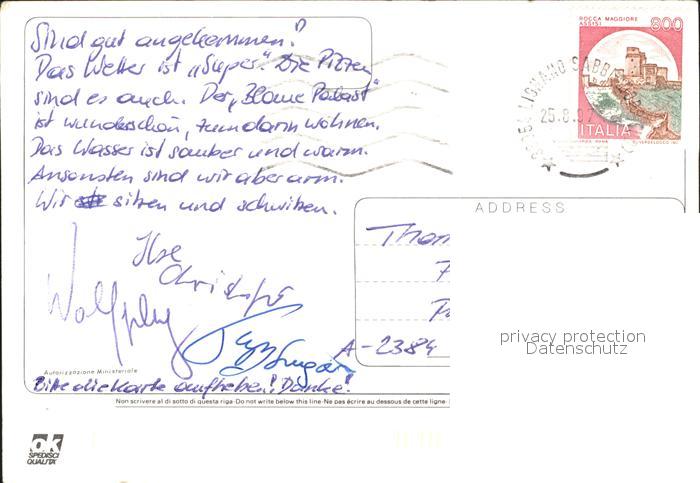 Sind gut angekommen!
Das Wetter ist „Super". Die Pizzen
sind es auch. Der „Blaue Palast"
ist wunderschön, zum darin wohnen.
Das Wasser ist sauber und warm.
Ansonsten sind wir aber arm.
Wir sitzen und schwitzen.
Ilse
Christoph
Wolfgang
Autorizzazione Ministeriale
Bitte die Karte aufheben! Danke!
Non scrivere al di sotto di questa riga-Do not write below this line-Ne pas écrire au dessous de cette ligne-
ok
SPEDISCI
QUALITA'
ROCCA MAGGIORE
ASSISI
800
ITALIA
LIGNANO SABB
25.8.9
ADDRESS
Thom
A-2384
privacy protection
Datenschutz